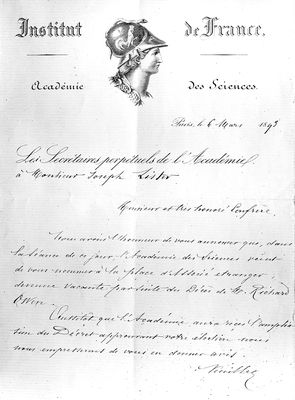 Institut de France.
Académie des Sciences.
Paris, le 6 Mars 1893
Les Secrétaires perpétuels de l'Académie
à Monsieur Joseph Lister
Monsieur et très honoré Confrère
Nous avons l'honneur de vous annoncer que, dans
la séance de ce jour, l'Académie des Sciences vient
de vous nommer à la place d'Associé étranger,
devenue vacante par suite du Décès de M. Richard
Owen.
Aussitôt que l'Académie aura reçu l'amplia-
tion du Décret approuvant votre élection nous
nous empresserons de vous en donner avis.
Veuillez